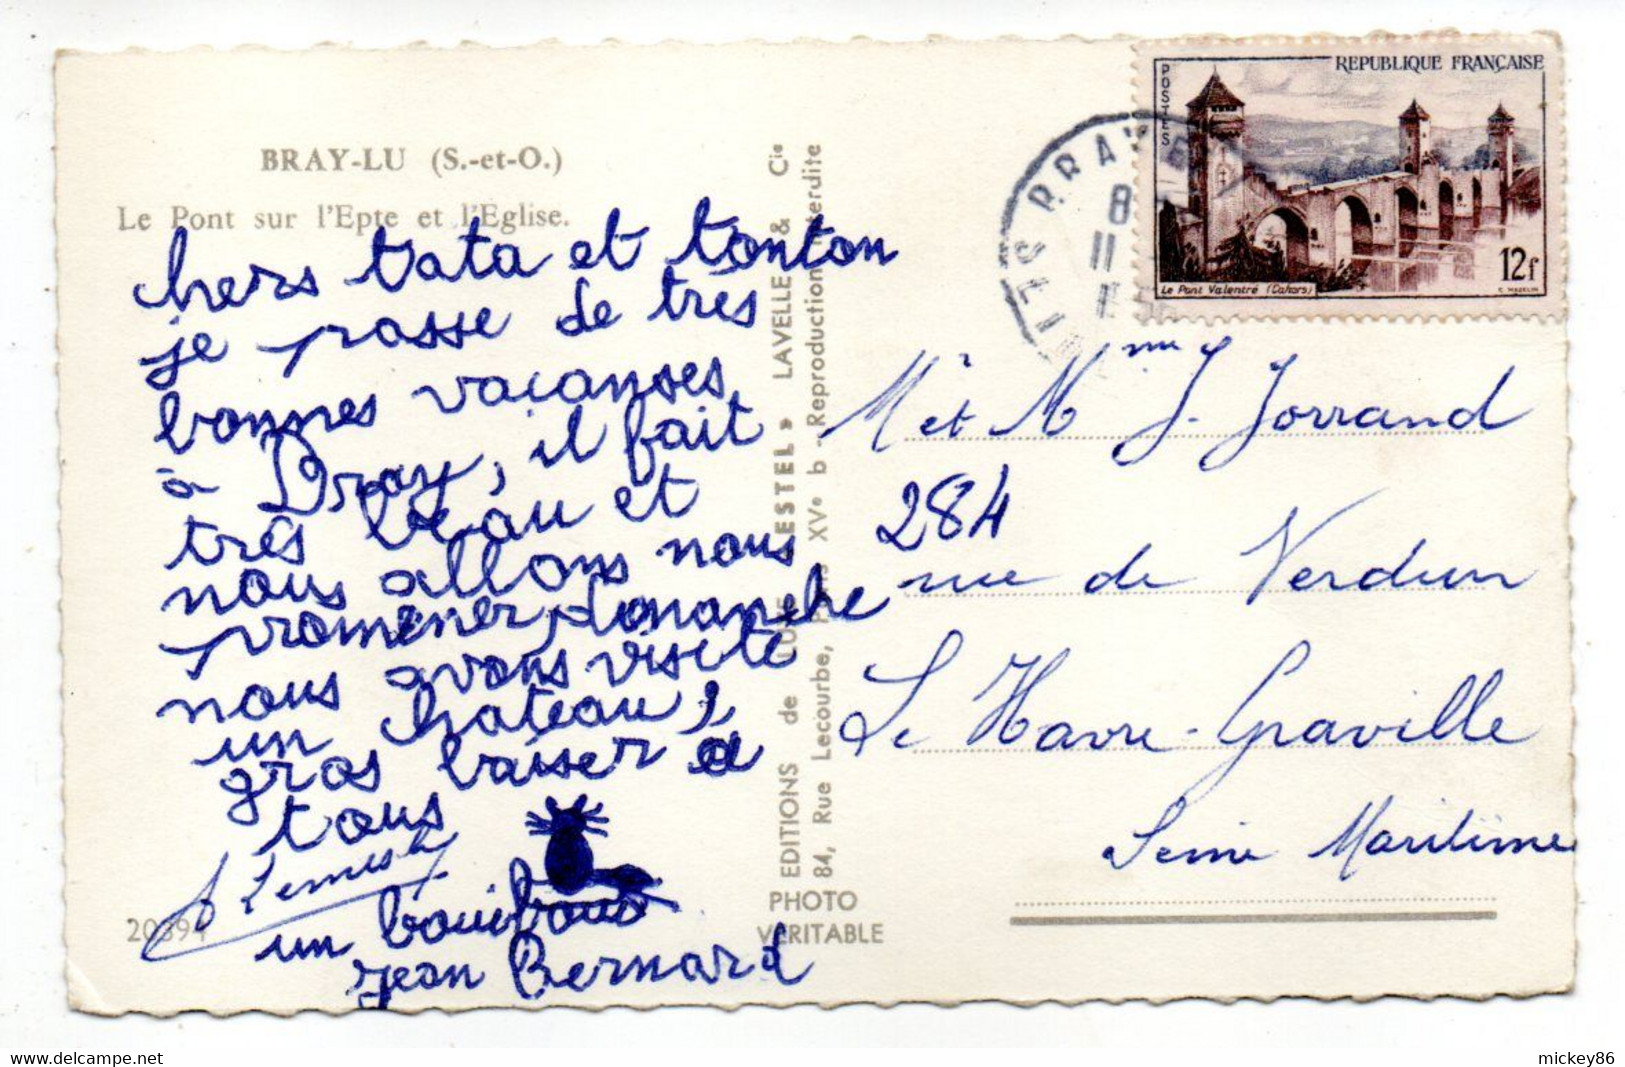 BRAY-LU (S.-et-O.)
Le Pont sur l'Epte et l'Eglise.
hers tata et tonton
je passe de tres
bonnes vacanses
à Bray, il fait
trés beau et
nous allons nous
promener, dimanche
nous avons visité
un chateau,
gros baiser a
tous
un
Jean Bernard
20394
EDITIONS de LUXE « ESTEL » LAVELLE & Cie
84, Rue Lecourbe, Paris XVe b - Reproduction interdite
PHOTO
VERITABLE
REPUBLIQUE FRANÇAISE
POSTES
12f
Le Pont Valentré (Cahors)
C. MAZELIN
BRAY
8
11
M et Mme J. Jorrand
284
rue de Verdun
Le Havre-Graville
Seine Maritime
mickey86